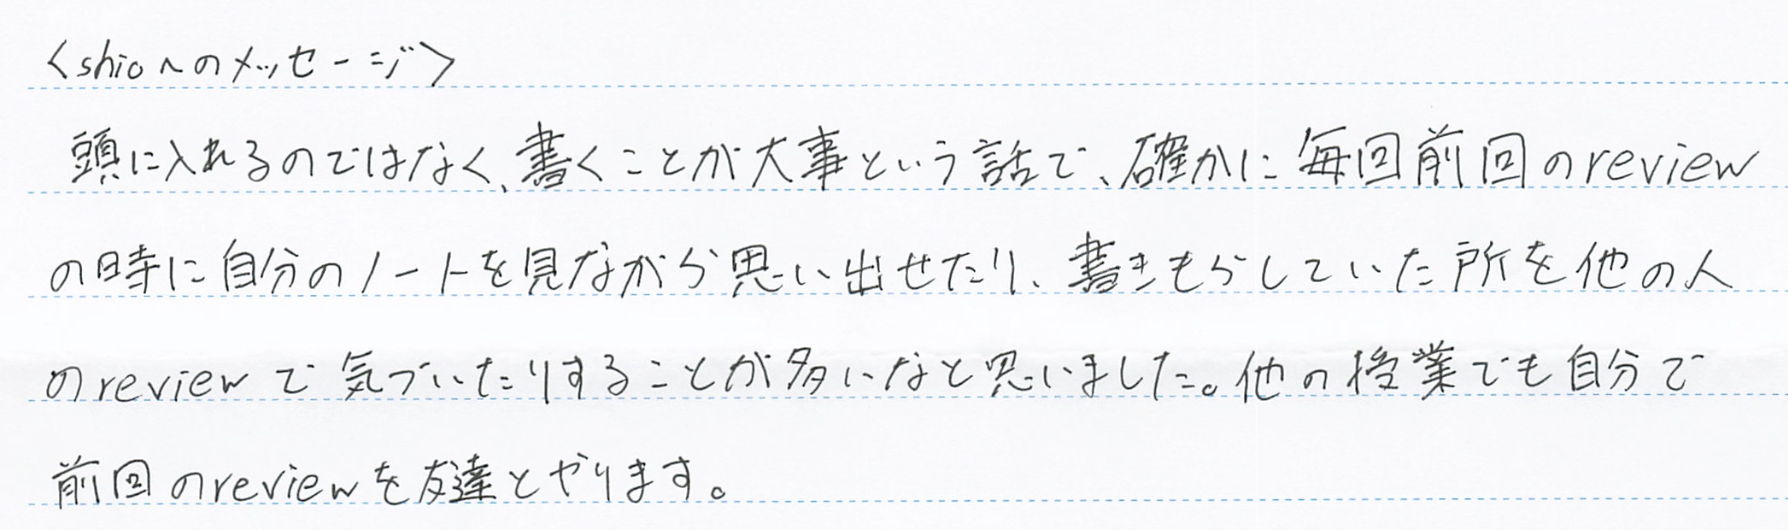 <shioへのメッセージ>
頭に入れるのではなく、書くことが大事という話で、確かに毎回前回のreview
の時に自分のノートを見ながら思い出せたり、書きもらしていた所を他の人
のreviewで気づいたりすることが多いなと思いました。他の授業でも自分で
前回のreviewを友達とやります。